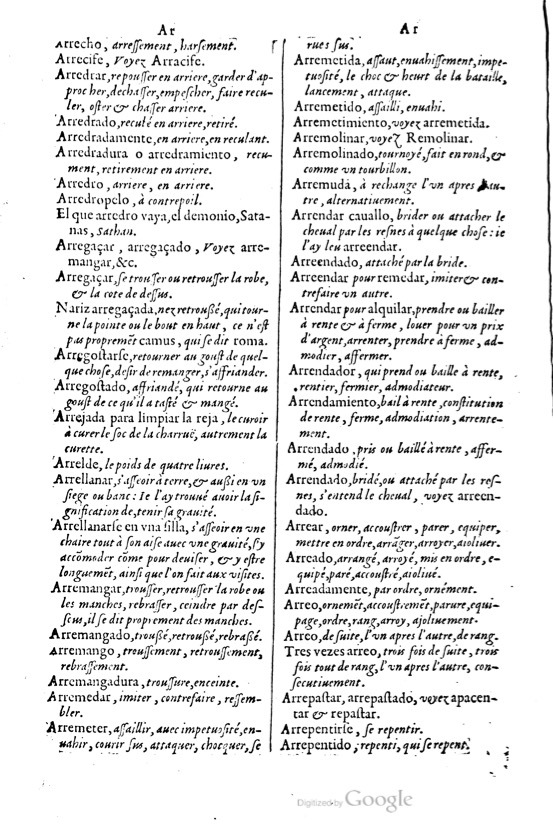 Ar
Arrecho, arressement, harsement.
Arrecife, Voyez Arracife.
Arredrar, repousser en arriere, garder d'ap-
procher, dechasser, empescher, faire recu-
ler, oster & chasser arriere.
Arredrado, reculé en arriere, retiré.
Arredradamente, en arriere, en reculant.
Arredradura o arredramiento, recu-
ment, retirement en arriere.
Arredro, arriere, en arriere.
Arredropelo, à contrepoil.
El que arredro vaya, el demonio, Sata-
nas, Sathan.
Arregaçar, arregaçado, Voyez arre-
mangar, &c.
Arregaçar, se trousser ou retrousser la robe,
& la cote de dessus.
Nariz arregaçada, nez retroußé, qui tour-
ne la pointe ou le bout en haut, ce n'est
pas propremẽt camus, qui se dit roma.
Arregostarse, retourner au goust de quel-
que chose, desir de remanger, s'affriander.
Arregostado, affriandé, qui retourne au
goust de ce qu'il a tasté & mangé.
Arrejada para limpiar la reja, le curoir
à curer le soc de la charruë, autrement la
curette.
Arrelde, le poids de quatre liures.
Arrellanar, s'asseoir à terre, & außi en vn
siege ou banc: Ie l'ay trouué auoir la si-
gnification de, tenir sa grauité.
Arrellanarse en vna silla, s'asseoir en vne
chaire tout à son aise auec vne grauité, s'y
accõmoder cõme pour deuiser, & y estre
longuemẽt, ainsi que l'on fait aux visites.
Arremangar, trousser, retrousser la robe ou
les manches, rebrasser, ceindre par des-
sus, il se dit proprement des manches.
Arremangado, troußé, retroußé, rebraßé.
Arremango, troussement, retroussement,
rebrassement.
Arremangadura, troussure, enceinte.
Arremedar, imiter, contrefaire, ressem-
bler.
Arremeter, assaillir, auec impetuosité, en-
uahir, courir sus, attaquer, chocquer, se
Ar
rues sus.
Arremetida, assaut, enuahissement, impe-
tuosité, le choc & heurt de la bataille,
lancement, attaque.
Arremetido, assailli, enuahi.
Arremetimiento, voyez arremetida.
Arremolinar, voyez Remolinar.
Arremolinado, tournoyé, fait en rond, &
comme vn tourbillon.
Arremuda, à rechange l'vn apres
tre, alternatiuement.
Arrendar cauallo, brider ou attacher le
cheual par les resnes à quelque chose: ie
l'ay leu arreendar.
Arreendado, attaché par la bride.
Arreendar pour remedar, imiter & con-
trefaire vn autre.
Arrendar pour alquilar, prendre ou bailler
à rente & à ferme, louer pour vn prix
d'argent, arrenter, prendre à ferme, ad-
modier, affermer.
Arrendador, qui prend ou baille à rente,
rentier, fermier, admodiateur.
Arrendamiento, bail à rente, constitution
de rente, ferme, admodiation, arrente-
ment.
Arrendado, pris ou baillé à rente, affer-
mé, admodié.
Arrendado, bridé, ou attaché par les res-
nes, s'entend le cheual, voyez arreen-
dado.
Arrear, orner, accoustrer, parer, equiper,
mettre en ordre, arrãger, arroyer, aioliuer.
Arreado, arrangé, arroyé, mis en ordre, e-
quipé, paré, accoustré, aioliué.
Arreadamente, par ordre, ornément.
Arreo, ornemẽt, accoustremẽt, parure, equi-
page, ordre, rang, arroy, ajoliuement.
Arreo, de suite, l'vn apres l'autre, de rang.
Tres vezes arreo, trois fois de suite, trois
fois tout de rang, l'vn apres l'autre, con-
secutiuement.
Arrepastar, arrepastado, voyez apacen-
tar & repastar.
Arrepentirse, se repentir.
Arrepentido, repenti, qui se repent.
Digitized by Google